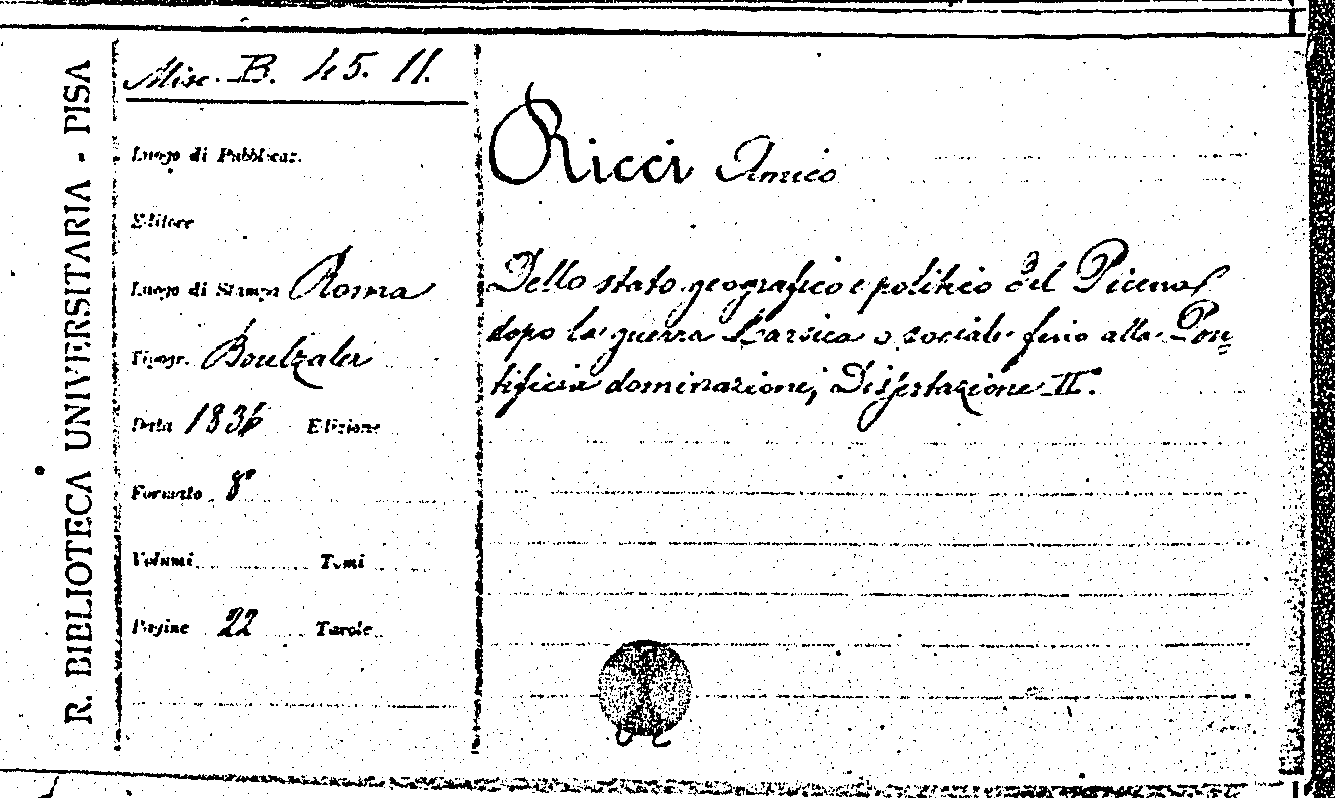 R. BIBLIOTECA UNIVERSITARIA - PISA
Misc. B. 45. 11.
Luogo di Pubblicaz.
Editore
Luogo di Stampa Roma
Tipogr. Boulzaler
Data 1836 Edizione
Formato 8°
Volumi Tomi
Pagine 22 Tavole
Ricci Amico
Dello stato geografico e politico del Piceno
dopo la guerra Marsica o sociale fino alla Pon=
tificia dominazione; Dissertazione II.